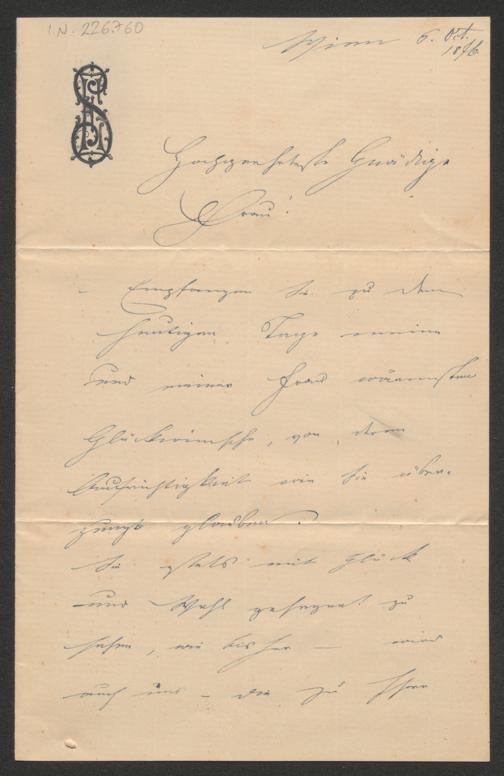 I.N. 226.760
Wien 6. Oct.
1876
Hochgeehrteste Gnädige
Frau!
Empfangen Sie zu dem
heutigen Tage meine
und meiner Frau wärmsten
Glückwünsche, von deren
Aufrichtigkeit wie Sie über-
zeugt glauben.
Sie stets mit Glück
und Wohl gesegnet zu
sehen, wie bisher — wird
auch uns — die zu Ihren